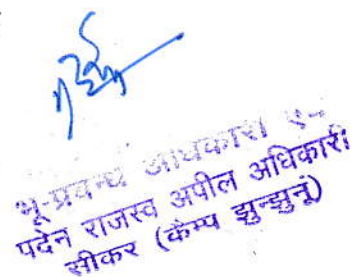 भू-प्रबन्ध अधिकारी ए-
पदेन राजस्व अपील अधिकारी
सीकर (कैम्प झुन्झुनू)